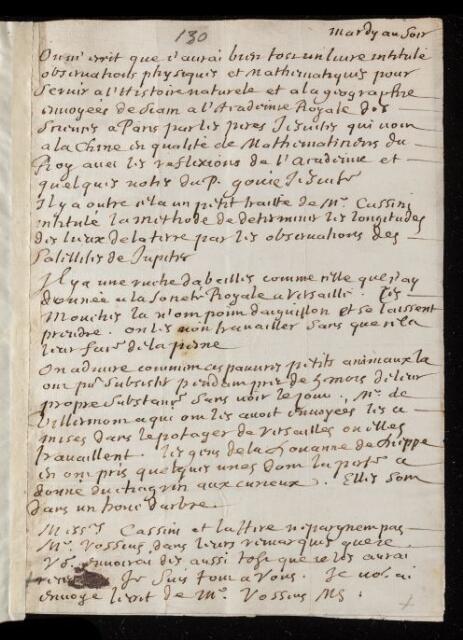 130
mardy au soir
On m'ecrit que i'aurai bien tost un livre intitulé
observations physiques et Mathematiques pour
servir a l'Histoire naturele et a la geographie
envoyées de Siam a l'Academie Royale des
sciences a Paris par les peres Jesuites qui vont
a la Chine en qualité de Mathematiciens du
Roy avec les reflexions de l'Academie et
quelques notes du P. gouie Jesuite
Il y a outre cela un petit traitté de Mr. Cassini
intitulé la methode de determiner les longitudes
des lieux de la terre par les observations des
satellites de Jupiter
Il y a une ruche d'abeilles comme celle que i'ay
donnée a la Societé Royale a Versaille. Ces
Mouches la n'ont point d'aiguillon et se laissent
prendre. on les voit travailler sans que cela
leur face de la peine
On admire comment ces pauvres petits animaux la
ont pu subsister pendant pres de 5 mois de leur
propre substance sans voir le jour. Mr. de
Villermont a qui on les avoit envoyées les a
mises dans le potager de Versailles ou elles
travaillent. les gens de la Douanne de Dieppe
en ont pris quelques unes dont la perte a
donné du chagrin aux curieux. Elles sont
dans un tronc d'arbre.
Messrs Cassini et la Hire n'epargnent pas
Mr. Vossius dans leurs remarques que ie
vous envoirai des aussi tost que ie les aurai
Je suis tout a vous. Je
envoye l'ecrit de Mr. Vossius